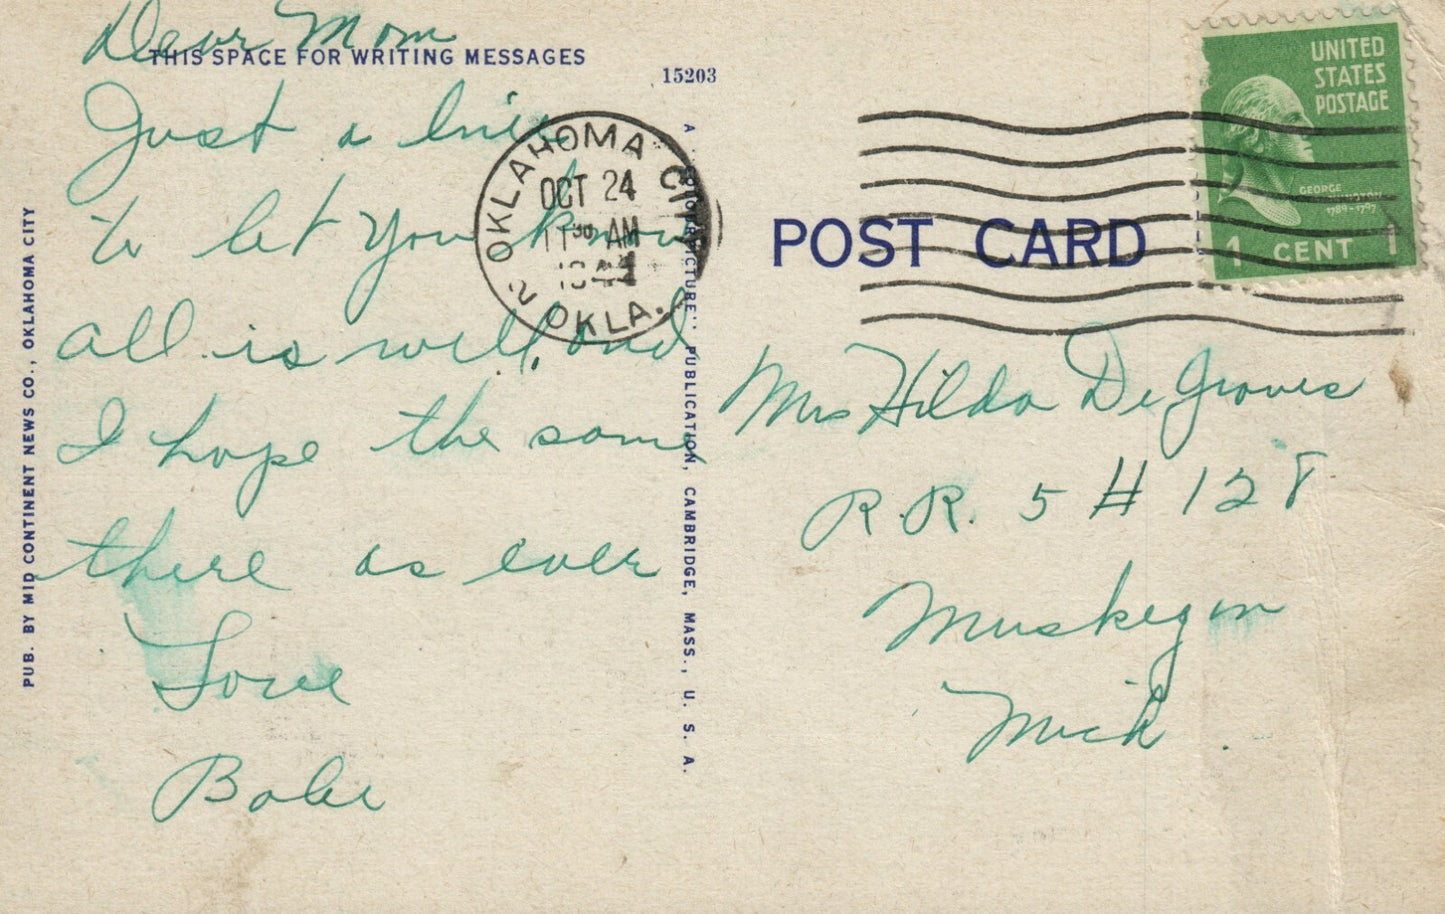 Dear Mom
THIS SPACE FOR WRITING MESSAGES
15203
Just a line
to let you know
all is well, and
I hope the same
there as ever
Love
Babe
PUB. BY MID CONTINENT NEWS CO., OKLAHOMA CITY
A "COLOURPICTURE" PUBLICATION, CAMBRIDGE, MASS., U. S. A.
OKLAHOMA CITY
OCT 24
11 30 AM
1944
2 OKLA.
UNITED
STATES
POSTAGE
GEORGE
WASHINGTON
1789-1797
1 CENT 1
POST CARD
Mrs Hilda DeGroves
R.R. 5 # 128
Muskegon
Mich.